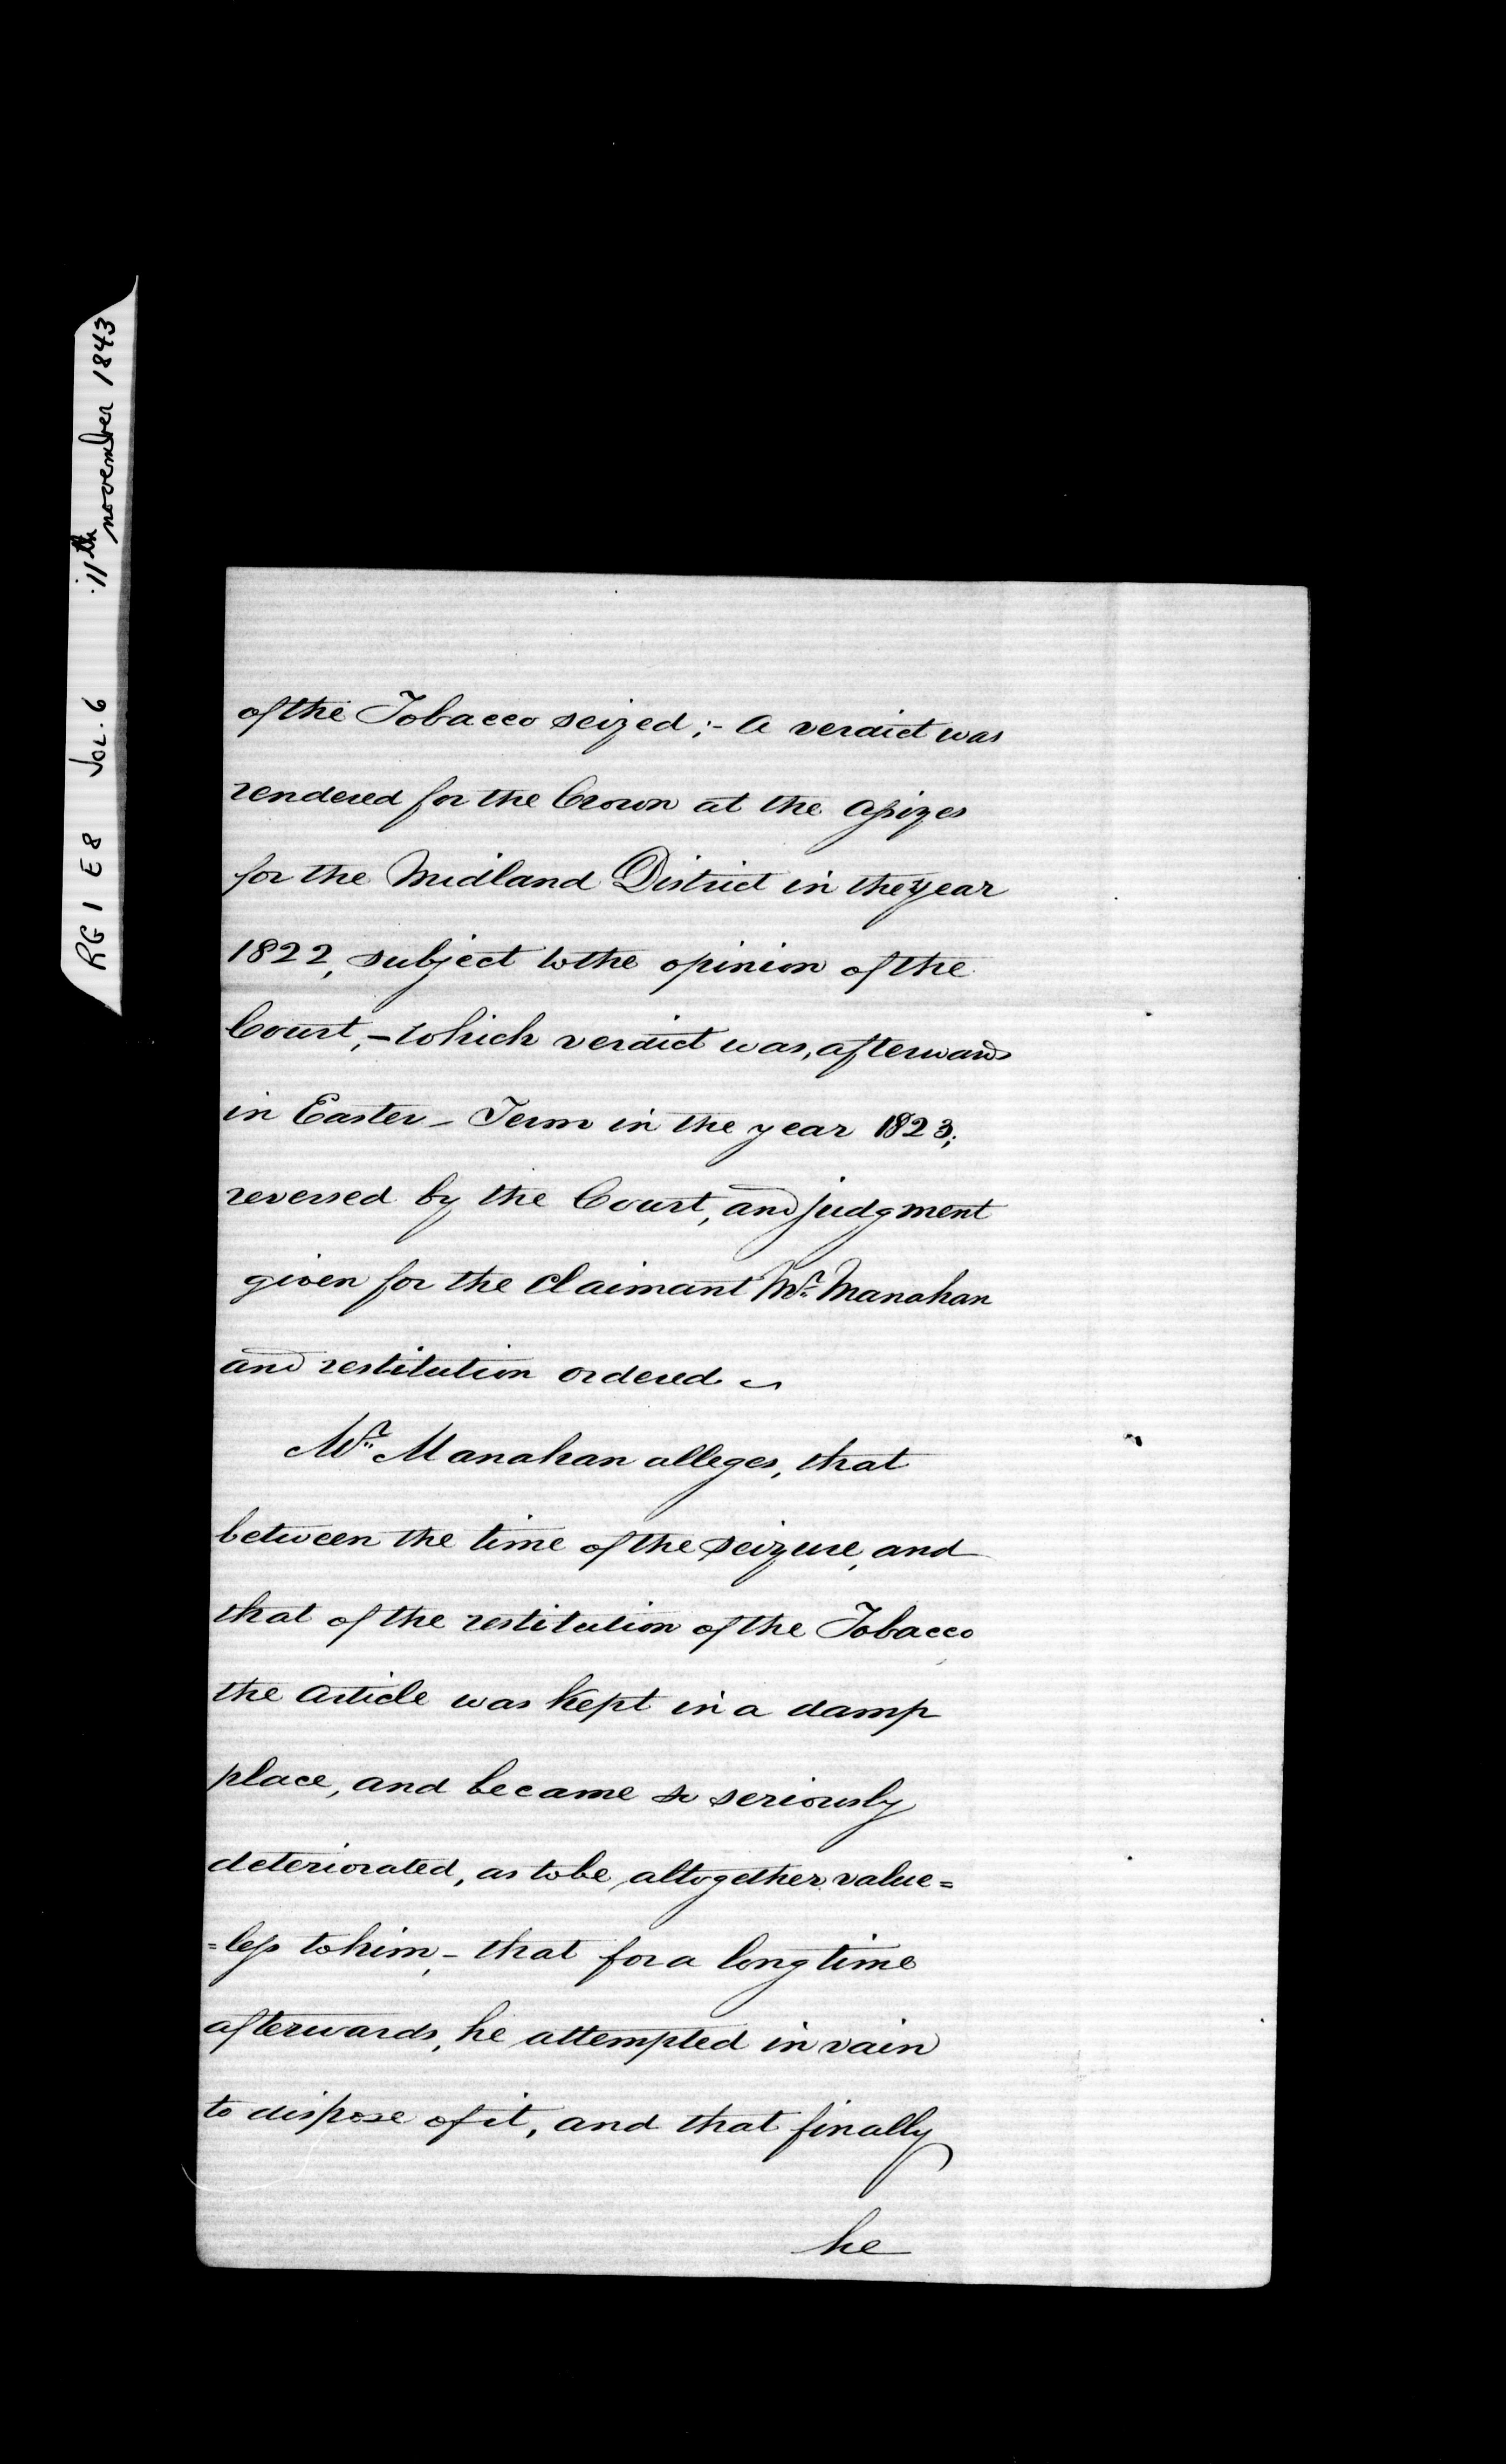 RG1 E8 Vol. 6 11th november 1843
of the Tobacco seized;- A verdict was
rendered for the Crown at the Assizes
for the Midland District in the year
1822, subject to the opinion of the
Court,- which verdict was, afterwards
in Easter- Term in the year 1823,
reversed by the Court, and judgment
given for the Claimant Mr. Manahan
and restitution ordered ~
Mr. Manahan alleges, that
between the time of the seizure, and
that of the restitution of the Tobacco
the Article was kept in a damp
place, and became so seriously
deteriorated, as to be altogether value=
=less to him,- that for a long time
afterwards, he attempted in vain
to dispose of it, and that finally
he